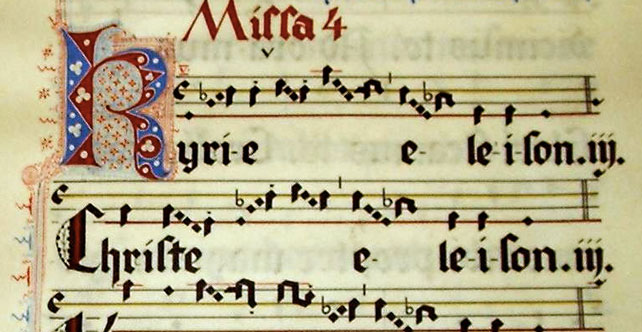 Missa 4
Kyri-e e- le-i-son.iij.
Christe e- le-i-son.iij.